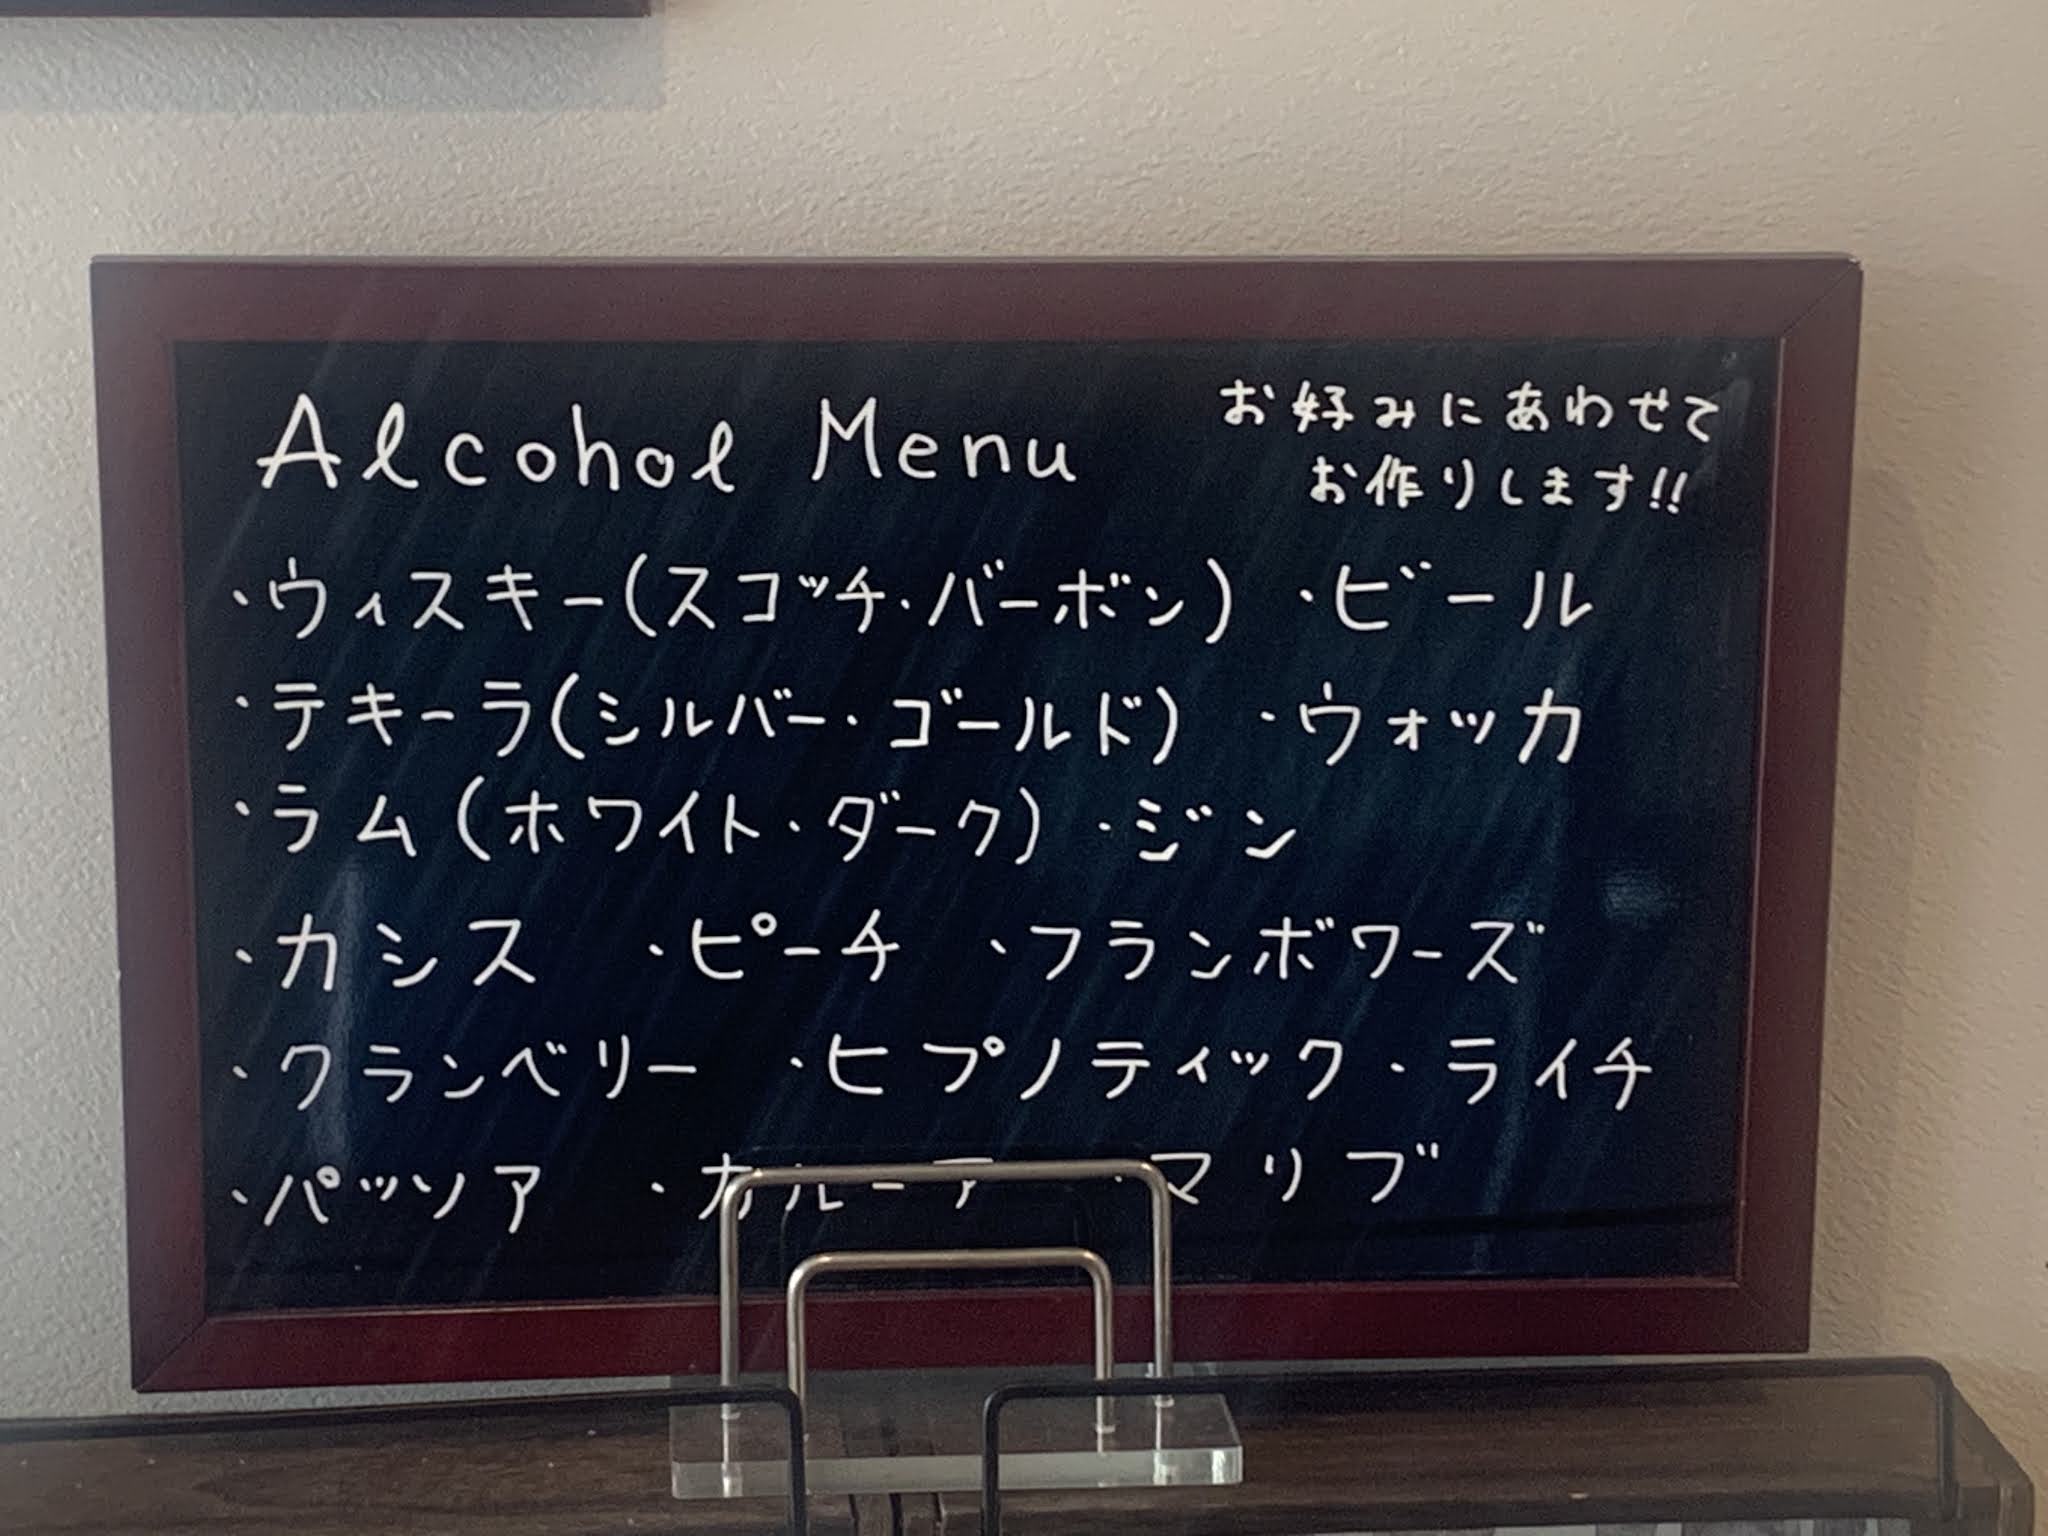 Alcohol Menu
お好みにあわせて
お作りします!!
・ウィスキー(スコッチ・バーボン) ・ビール
・テキーラ(シルバー・ゴールド) ・ウォッカ
・ラム(ホワイト・ダーク) ・ジン
・カシス ・ピーチ ・フランボワーズ
・クランベリー ・ヒプノティック ・ライチ
・パッソア ・カルーア ・マリブ